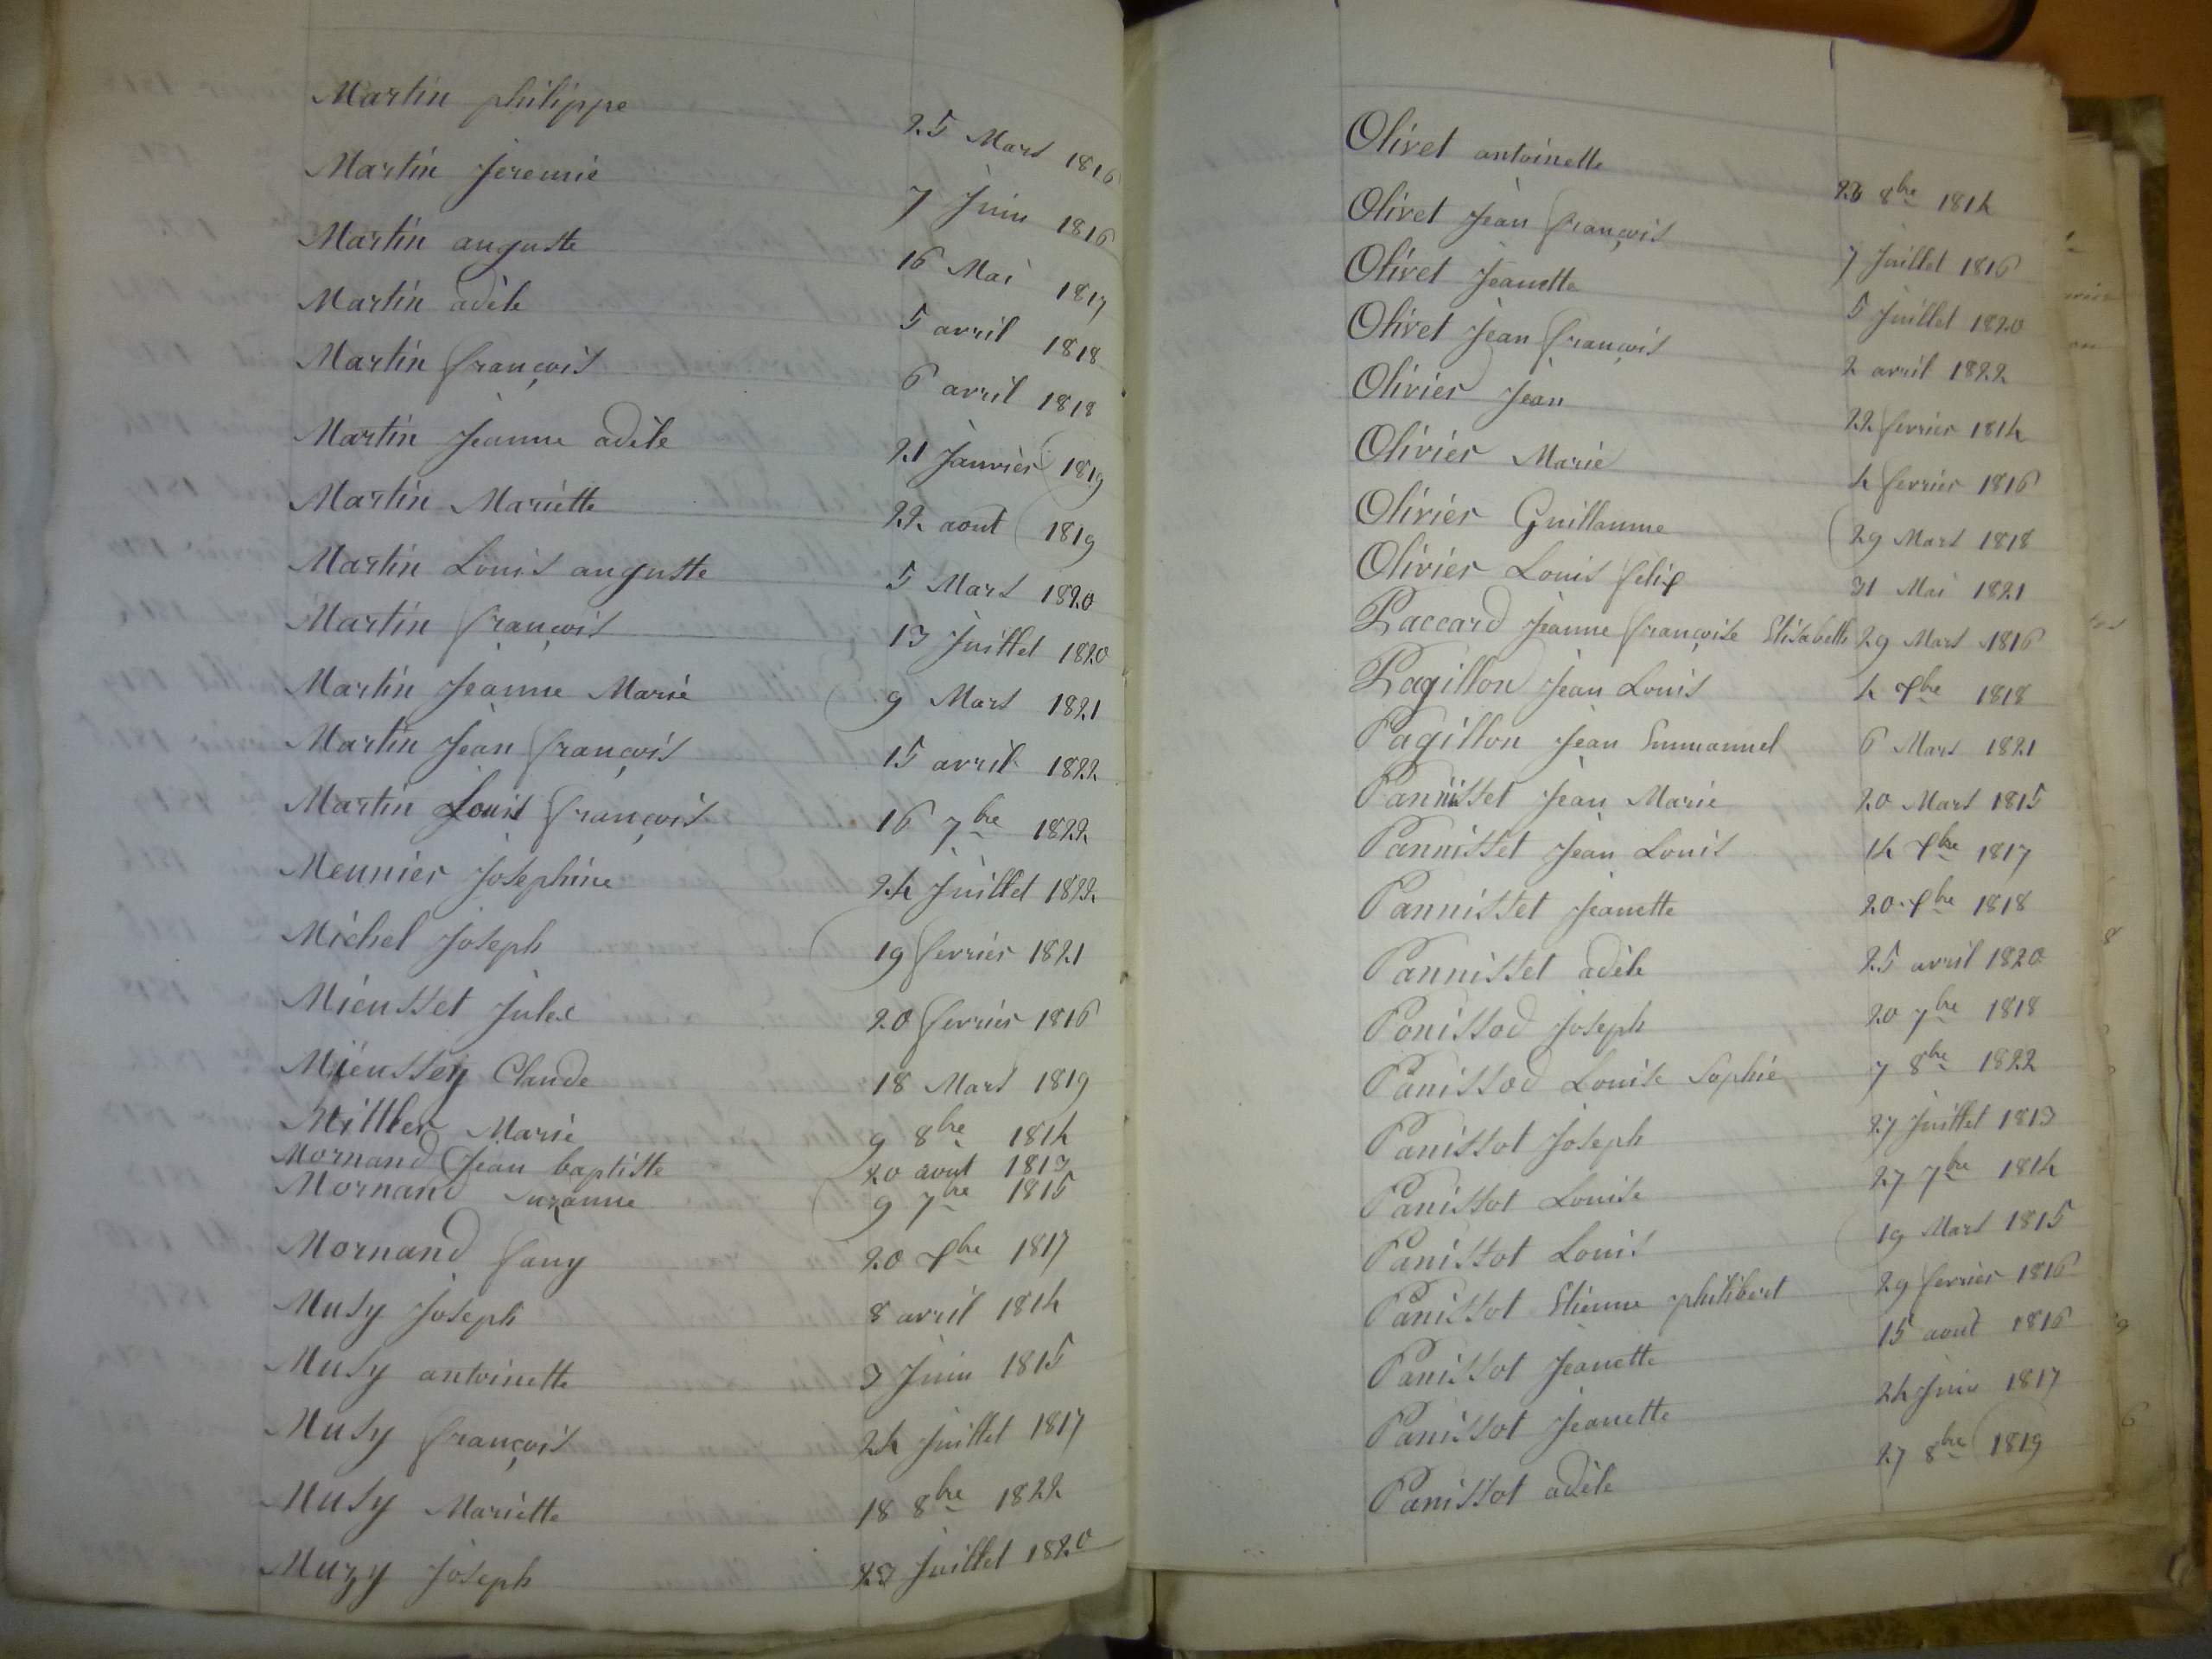 Martin philippe 25 Mars 1816
Martin Jeremie 7 Juin 1816
Martin auguste 16 Mai 1817
Martin adèle 5 avril 1818
Martin françois 6 avril 1818
Martin Jeanne adèle 21 Janvier 1819
Martin Mariette 22 aout 1819
Martin Louis auguste 5 Mars 1820
Martin françois 13 Juillet 1820
Martin Jeanne Marie 9 Mars 1821
Martin Jean françois 15 avril 1822
Martin Louis françois 16 7bre 1822
Meunier Josephine 24 Juillet 1822
Michel Joseph 19 fevrier 1821
Mieusset Jules 20 fevrier 1816
Mieussey Claude 18 Mars 1819
Mittler Marie 9 8bre 1814
Mornand Jean baptiste 20 aout 1813
Mornand Suzanne 9 7bre 1815
Mornand fany 20 Xbre 1817
Musy Joseph 8 avril 1814
Musy antoinette 3 Juin 1815
Musy françois 24 Juillet 1817
Musy Mariette 18 8bre 1822
Muzy Joseph 23 Juillet 1820
Olivet antoinette 8bre 1814
Olivet Jean françois 7 Juillet 1816
Olivet Jeanette 5 Juillet 1820
Olivet Jean françois 2 avril 1822
Olivier Jean 22 fevrier 1814
Olivier Marie 4 fevrier 1816
Olivier Guillaume 29 Mars 1818
Olivier Louis felix 31 Mai 1821
Paccard Jeanne françoise Elisabeth 29 Mars 1816
Pagillon Jean Louis 4 Xbre 1818
Pagillon Jean Emmanuel 6 Mars 1821
Pannisset Jean Marie 20 Mars 1815
Pannisset Jean Louis 14 Xbre 1817
Pannisset Jeanette 20 Xbre 1818
Pannisset adèle 25 avril 1820
Ponissod Joseph 20 7bre 1818
Panissod Louise Sophie 7 8bre 1822
Panissot Joseph 27 Juillet 1813
Panissot Louise 27 7bre 1814
Panissot Louis 19 Mars 1815
Panissot Etienne philibert 29 fevrier 1816
Panissot Jeanette 15 aout 1816
Panissot Jeanette 24 Juin 1817
Panissot adèle 27 8bre 1819